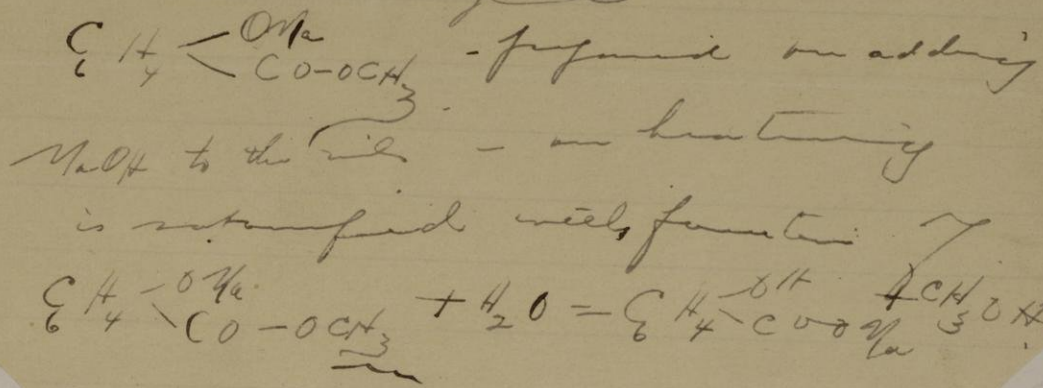 C6H4 < ONa CO-OCH3 - prepared on adding
NaOH to the oil - on heating
is saponified with formation of
C6H4 - ONa \ CO-OCH3 + H2O = C6H4 - OH \ COONa + CH3OH